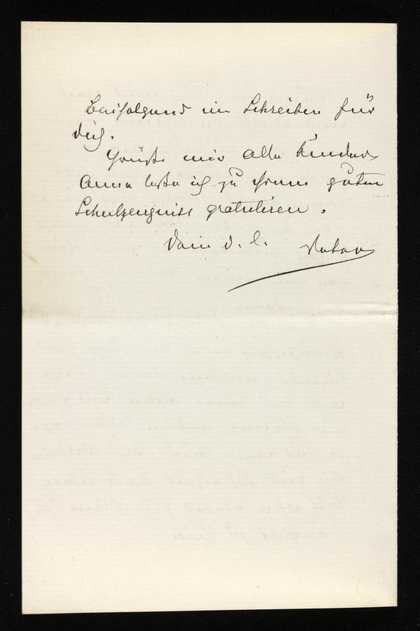 Beifolgend ein Schreiben für
Dich.
Grüße mir alle Kinder.
Anna lasse ich zu ihrem guten
Schulzeugniss gratuliren.
Dein d. l. Vater